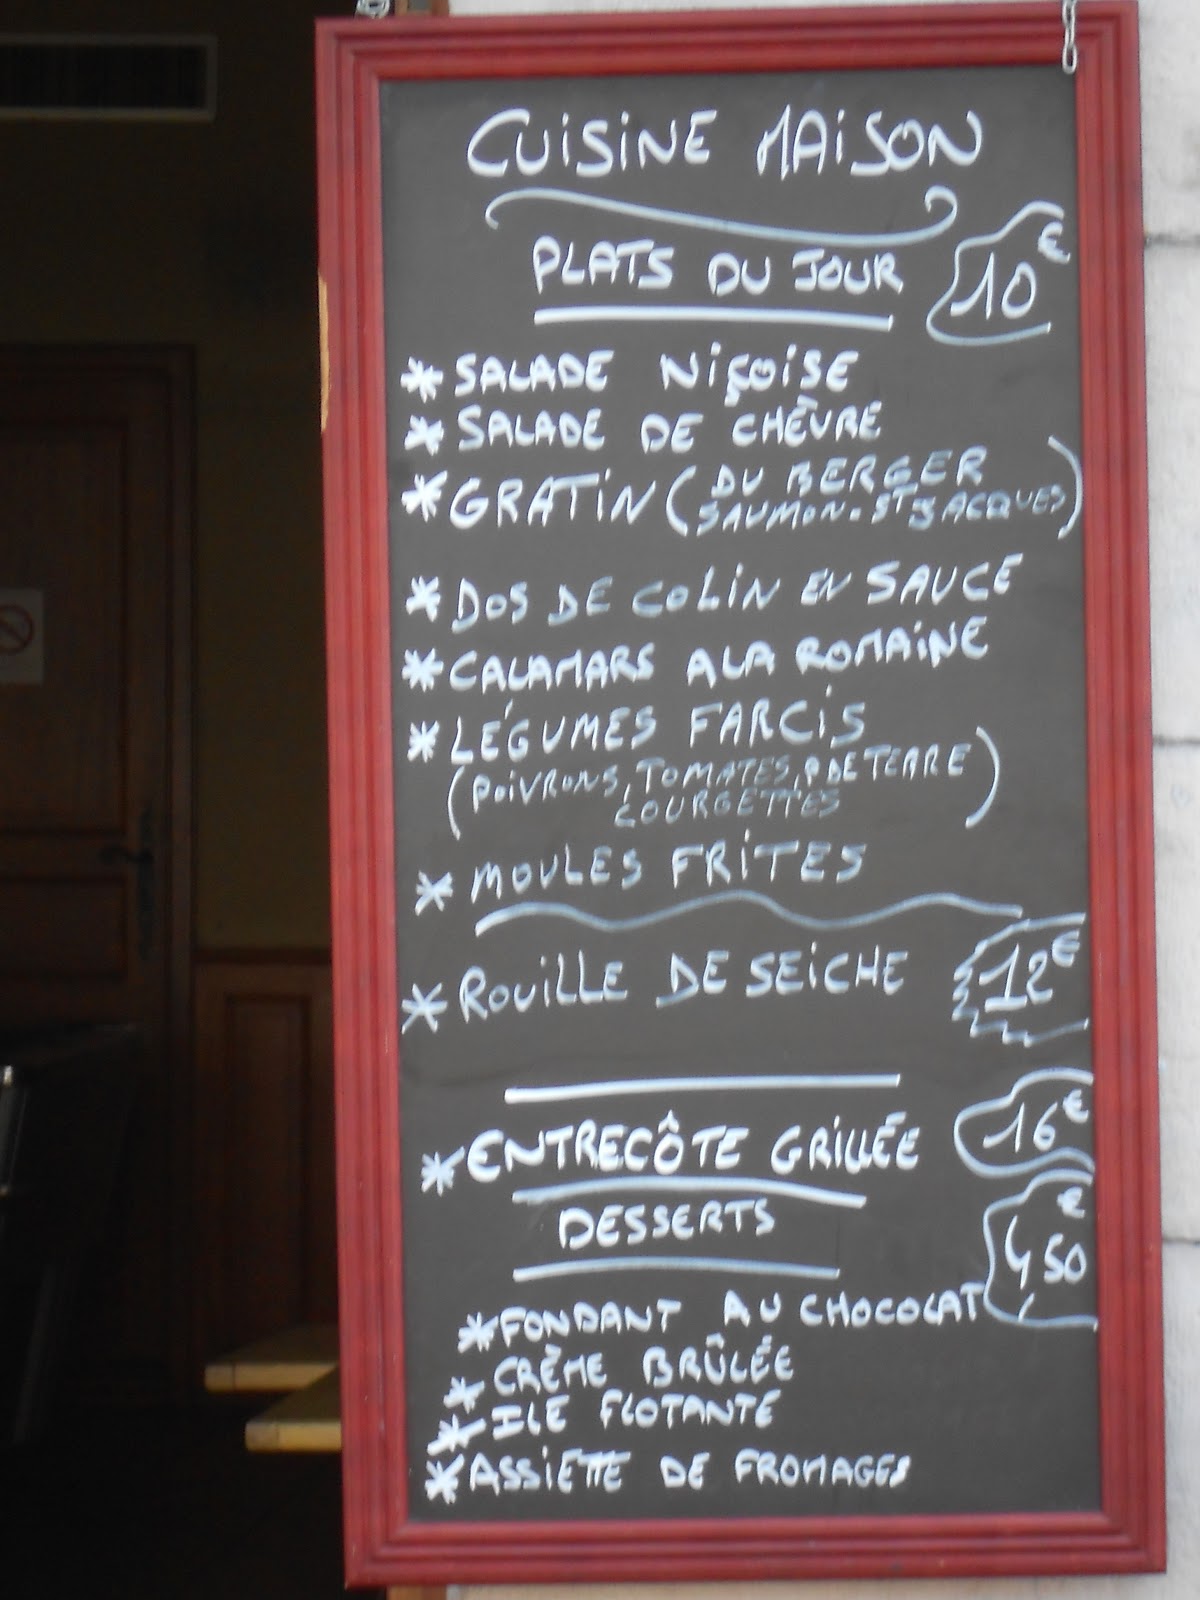 CUISINE MAISON
PLATS DU JOUR 10€
* SALADE NIÇOISE
* SALADE DE CHÈVRE
* GRATIN (DU BERGER
SAUMON. ST JACQUES)
* DOS DE COLIN EN SAUCE
* CALAMARS A LA ROMAINE
* LÉGUMES FARCIS
(POIVRONS, TOMATES, P DE TERRE
COURGETTES)
* MOULES FRITES
* ROUILLE DE SEICHE 12€
* ENTRECÔTE GRILLÉE 16€
DESSERTS 4,50€
* FONDANT AU CHOCOLAT
* CRÈME BRÛLÉE
* ILE FLOTANTE
* ASSIETTE DE FROMAGES